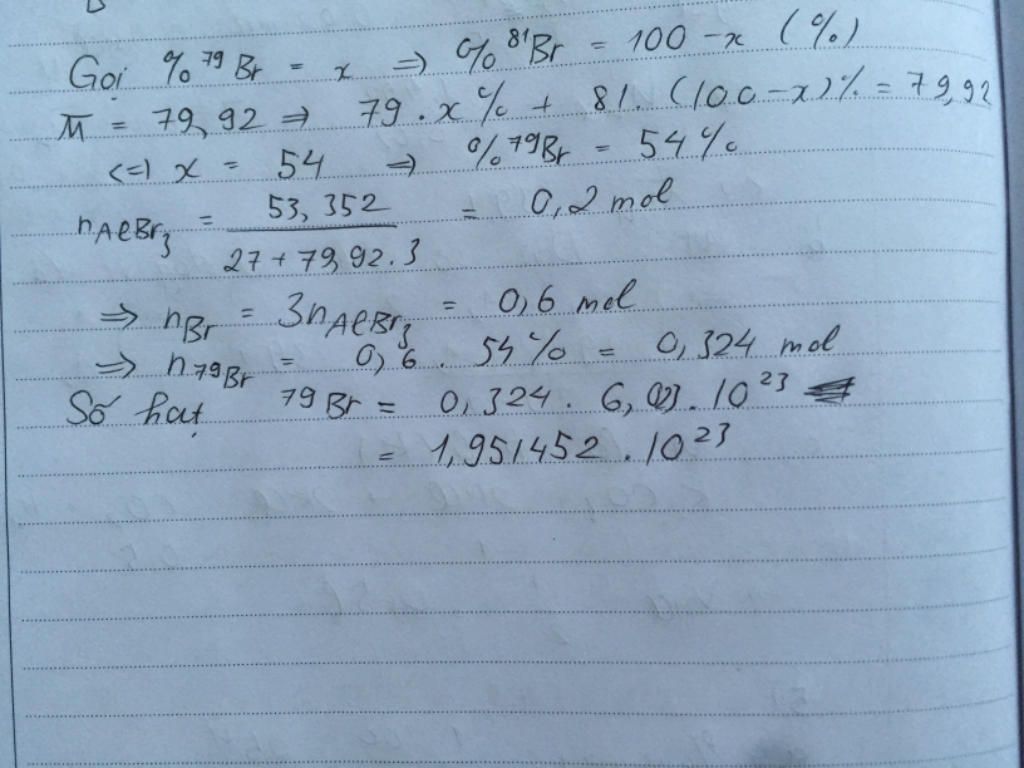 Gọi % ⁷⁹Br = x => % ⁸¹Br = 100 - x (%)
M̅ = 79,92 => 79 . x% + 81. (100-x)% = 79,92
<=> x = 54 => % ⁷⁹Br = 54%
n_AlBr₃ = 53,352 / (27 + 79,92 . 3) = 0,2 mol
=> n_Br = 3n_AlBr₃ = 0,6 mol
=> n_⁷⁹Br = 0,6 . 54% = 0,324 mol
Số hạt ⁷⁹Br = 0,324 . 6,023 . 10²³
= 1,951452 . 10²³